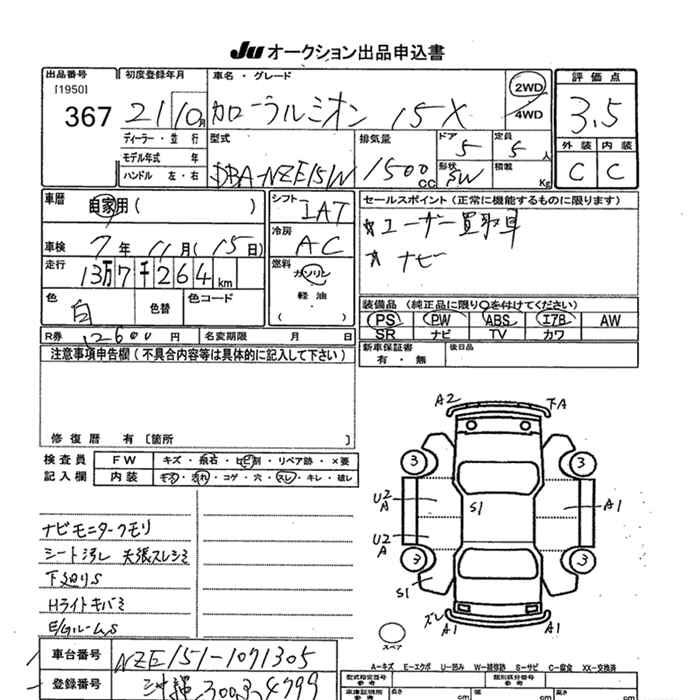 JU オークション出品申込書
出品番号 [1950] 367
初度登録年月 21 10月
車名・グレード カローラルミオン 15X
2WD 4WD
評価点 3.5
外装 内装
C C
ディーラー・並行
モデル年式 年
ハンドル 左・右
型式 DBA-NZE151N
排気量 1500 CC
ドア 5
形状 SW
定員 5人
積載 Kg
車歴 自家用( )
シフト IAT
車検 7年11月(15日)
冷房 AC
走行 13万7千264km
燃料 ガソリン・軽油・( )
色 白 色替 色コード
R券 12600円 名変期限 月 日
セールスポイント(正常に機能するものに限ります)
☆ユーザー買取車
☆ナビ
装備品(純正品に限り○を付けてください)
PS PW ABS エアB AW
SR ナビ TV カワ
新車保証書 有・無 後日品
注意事項申告欄(不具合内容等は具体的に記入して下さい)
修復歴 有 [箇所 ]
検査員 記入欄
FW キズ・飛石・ヒビ割・リペア跡・×要
内装 キズ・汚れ・コゲ・穴・スレ・キレ・破レ
ナビモニタークモリ
シート汚レ 天張スレシミ
下廻りS
Hライトキバミ
E/GルームS
A2 下A
3 3
U2 A S1 A1
U2 A
3 3
S1
ズレ A1 A1
スペア
A-キズ E-エクボ U-凹み W-補修跡 S-サビ C-腐食 XX-交換済
車台番号 NZE151-1071305
登録番号 沖縄 300 る 4799
型式指定番号 参考 類別区分番号 参考
車庫証明用 参考 長さ cm 幅 cm 高さ cm